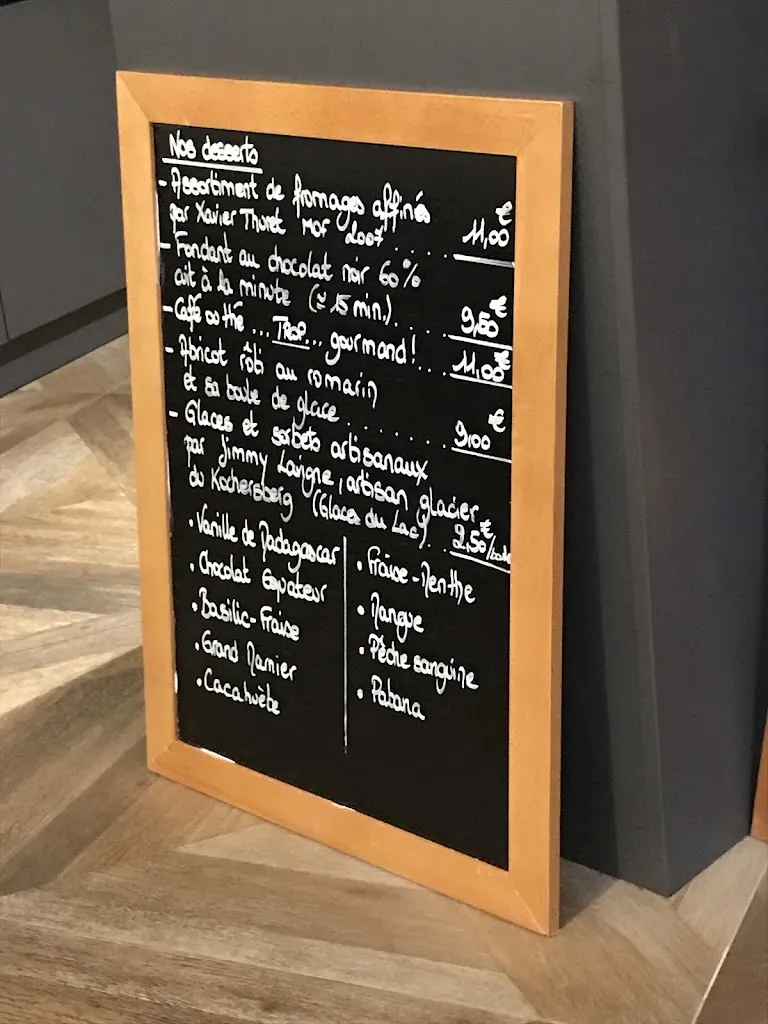 Nos desserts
- Assortiment de fromages affinés
par Xavier Thuret MOF 2007 ..... 11,00€
- Fondant au chocolat noir 60%
cuit à la minute (≃ 15 min.) .... 9,50€
- Café ou thé ... TROP... gourmand! .. 11,00€
- Abricot rôti au romarin
et sa boule de glace ....... 9,00€
- Glaces et sorbets artisanaux
par Jimmy Lavigne, artisan glacier
du Kochersberg (Glaces du Lac) .. 2,50€/boule
• Vanille de Madagascar
• Chocolat Equateur
• Basilic-Fraise
• Grand Marnier
• Cacahuète
• Fraise-Menthe
• Mangue
• Pêche sanguine
• Pabana